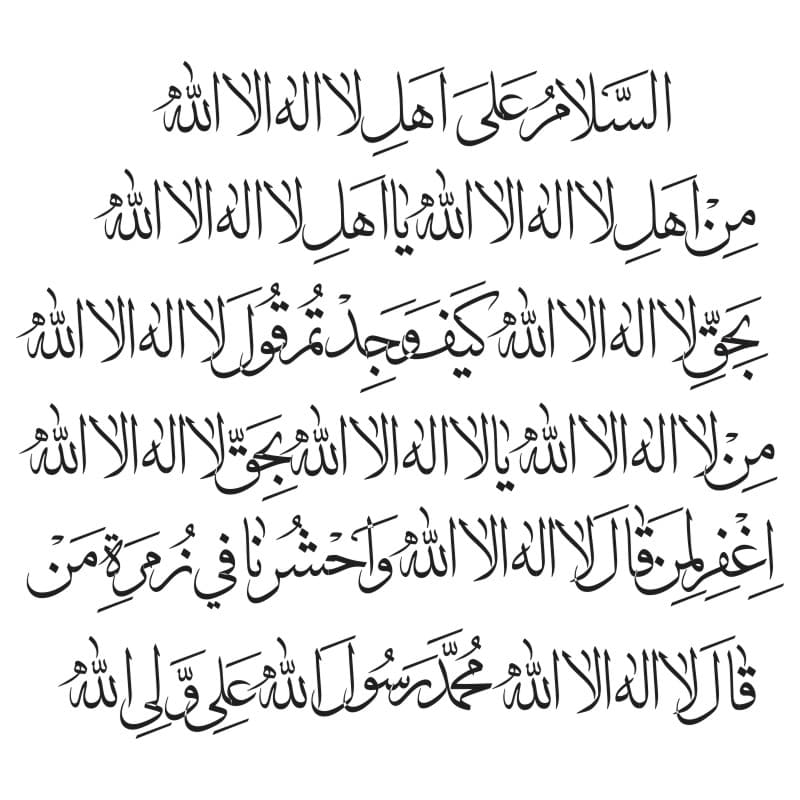 السَّلَامُ عَلَىٰ اَهْلِ لَا اله الا الله
مِنْ اَهْلِ لَا اله الا الله يا اَهَلِ لَا اله الا الله
بِحَقِّ لَا اله الا الله كَيْفَ وَجَدْتُمْ قُولَ لَا اله الا الله
مِنْ لَا اله الا الله يالا اله الا الله بِحَقِّ لَا اله الا الله
اِغْفِر لِمِن قَالَ لَا اله الا الله وَاَحْشُرْنا في زُمرَةِ مَنْ
قَالَ لَا اله الا الله مُحَمَّد رَسُولَ الله عَلِي وَّلِي الله